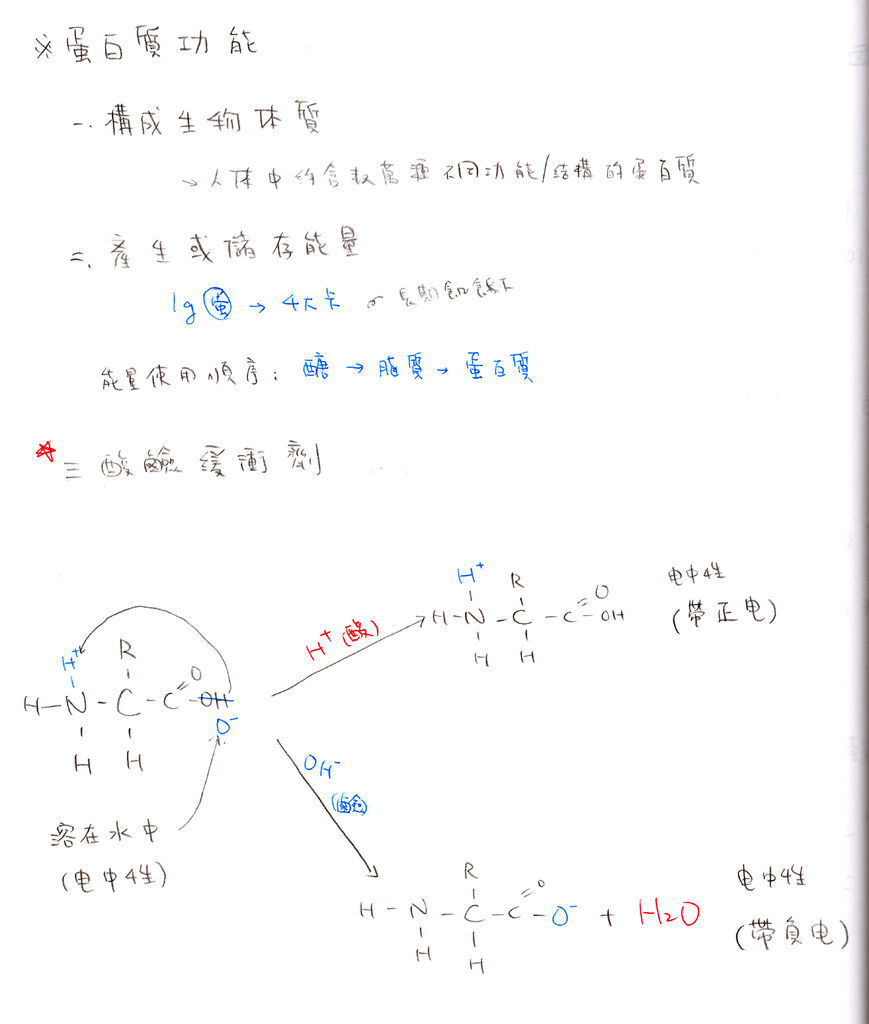 ※蛋白質功能
一.構成生物体質
→人体中約含數萬種不同功能/結構的蛋白質
二.產生或儲存能量
1g蛋→4大卡 or 長期飢餓下
能量使用順序:醣→脂質→蛋白質
三 酸鹼緩衝劑
H+ R O 电中性
H-N-C-C-OH (帶正电)
H H
H+(酸)
H+ R O
H-N-C-C-OH
O-
H H
OH-
(鹼)
溶在水中
(电中性)
R O 电中性
H-N-C-C-O- + H2O
(帶負电)
H H